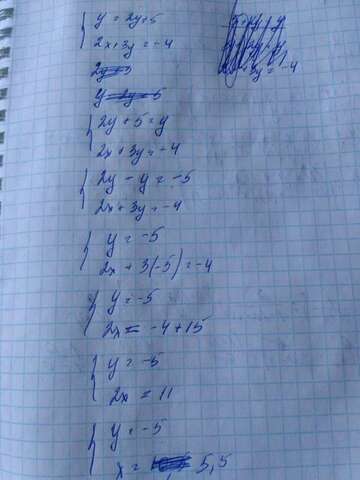 y = 2y+5
2x+3y = -4
2y+5 = y
2x+3y = -4
2y - y = -5
2x+3y = -4
y = -5
2x + 3(-5) = -4
y = -5
2x = -4+15
y = -5
2x = 11
y = -5
x = 5,5